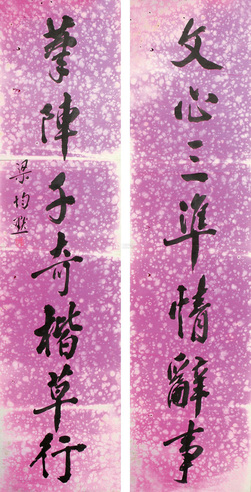 文心三準情辭事
筆陣千奇楷草行
梁均默